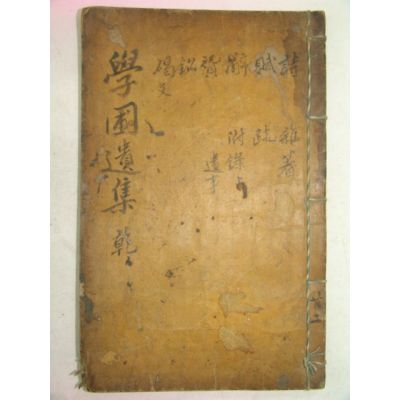 共二
詩 雜著
賦 疏
辭 附錄
賛 遺事
銘
碣文
學圃遺集 乾